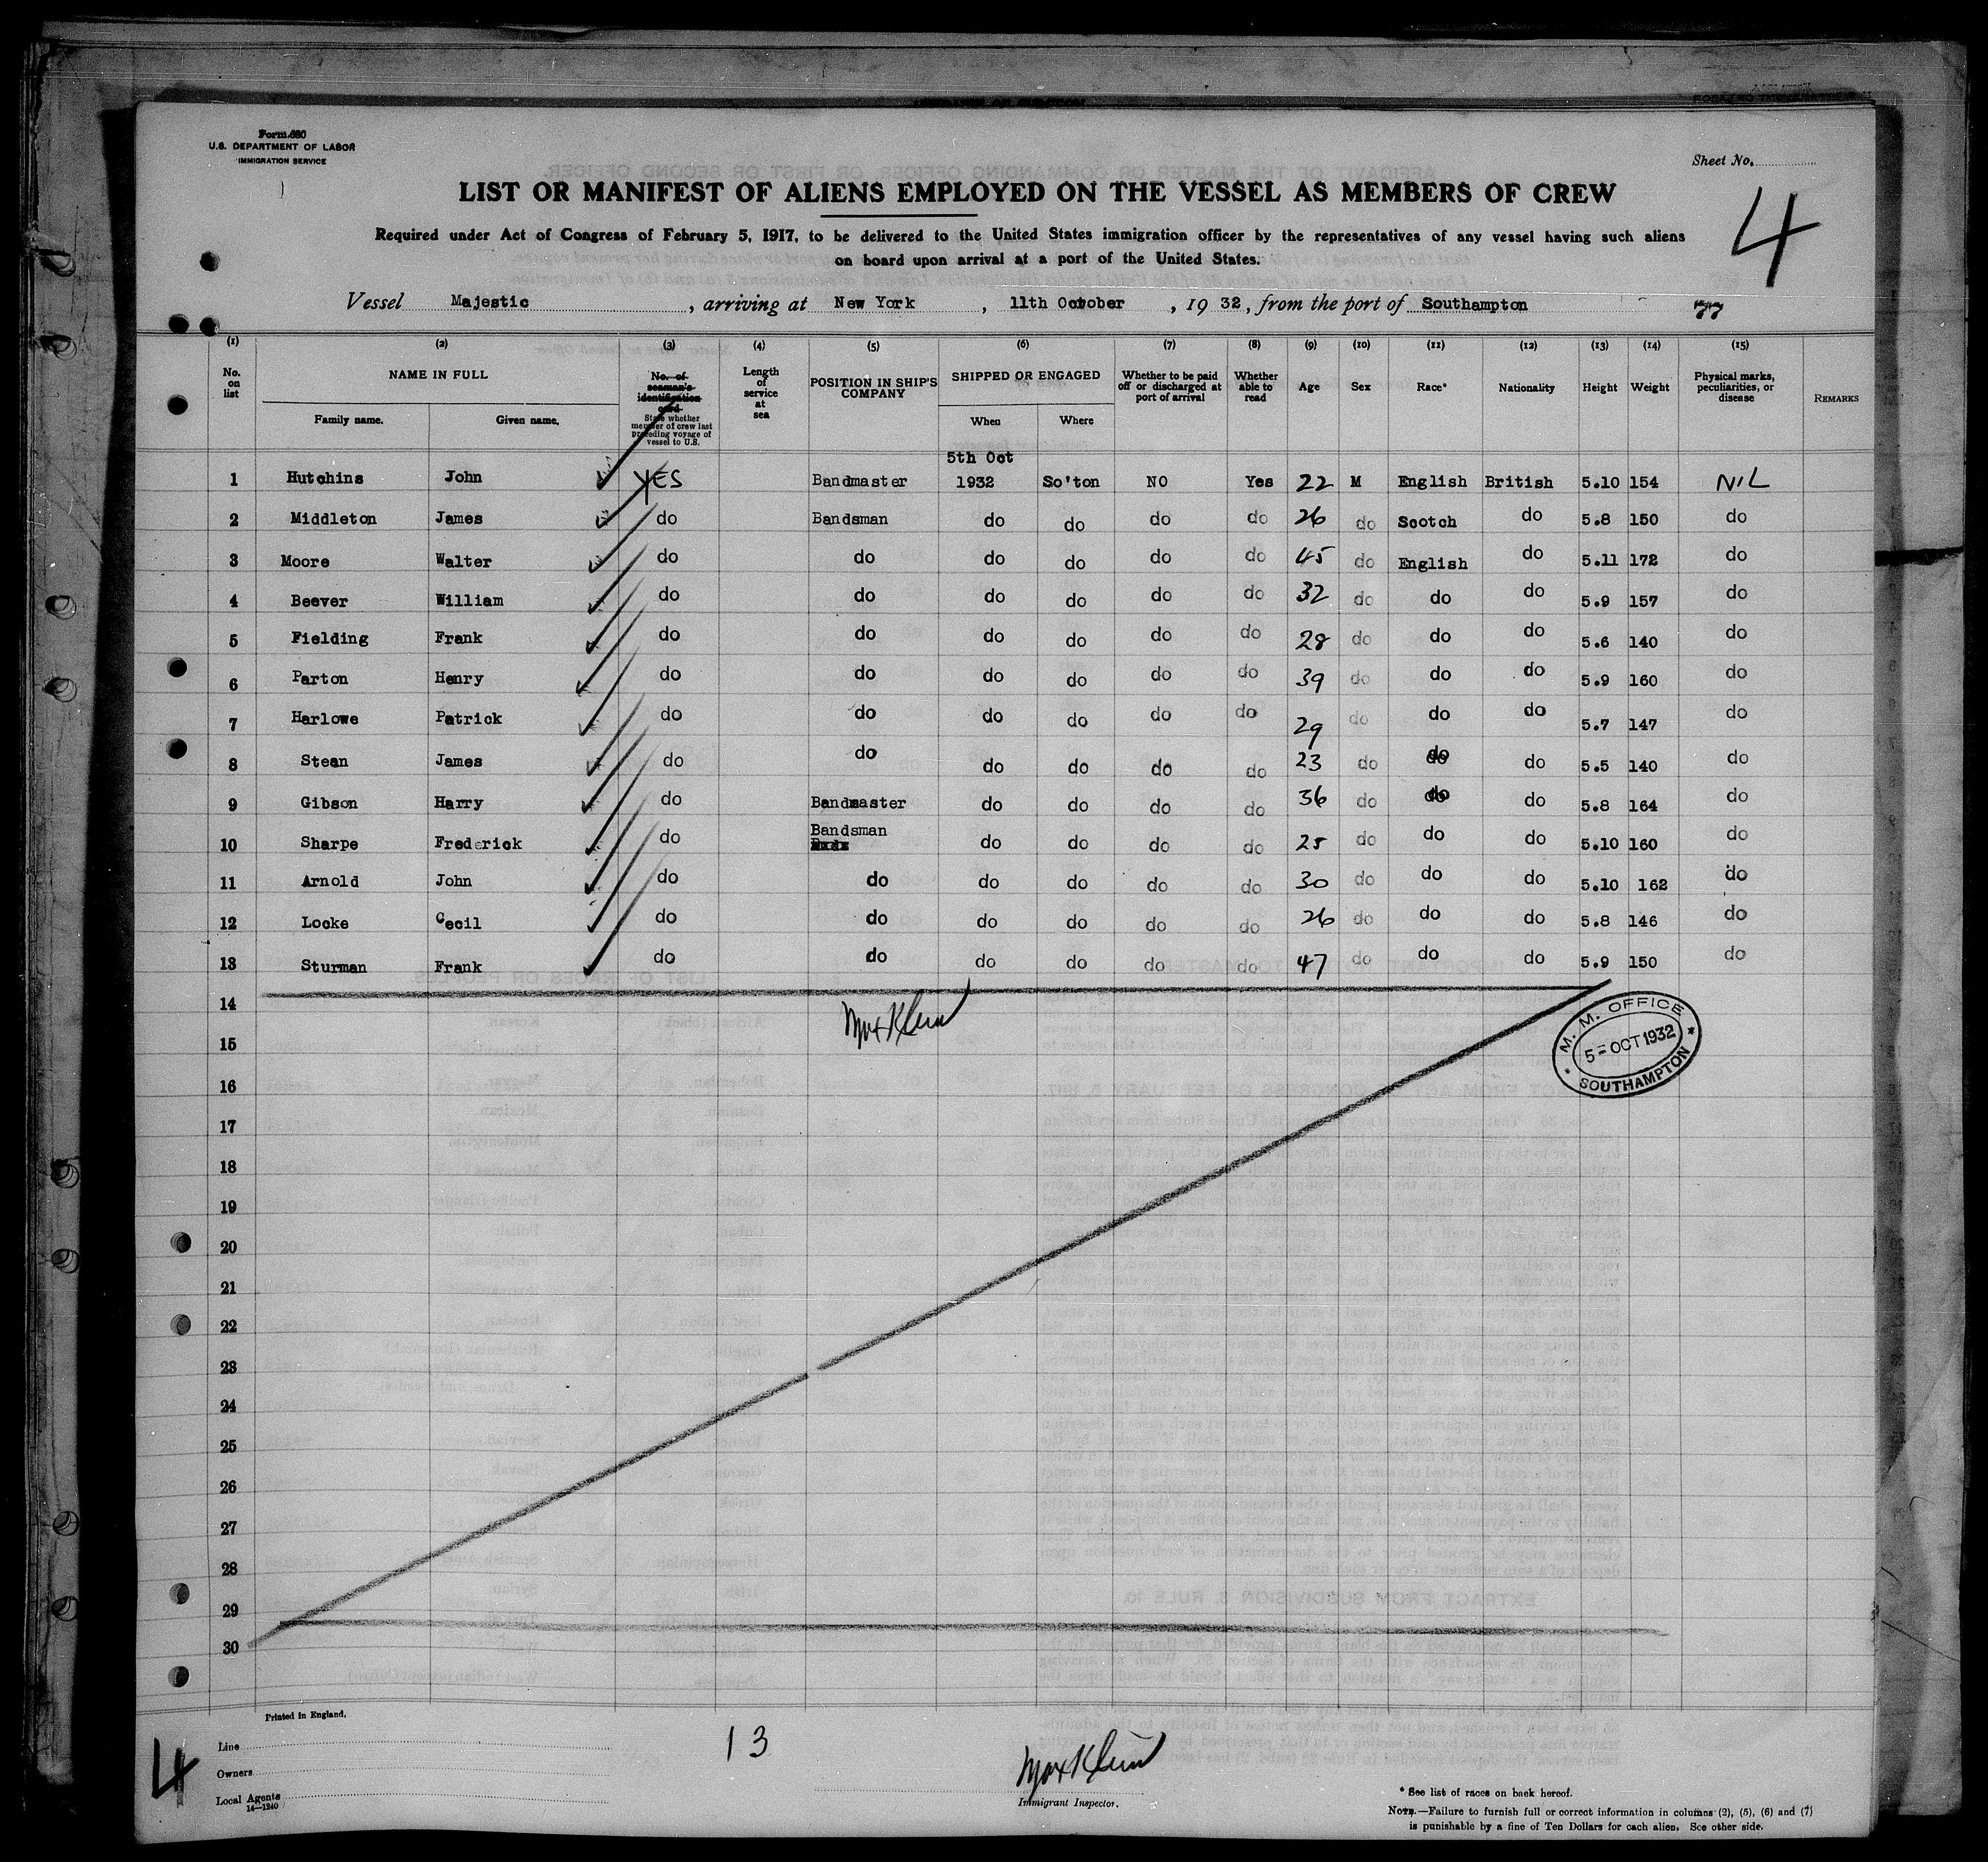 Form 680
U.S. DEPARTMENT OF LABOR
IMMIGRATION SERVICE
Sheet No.
4
LIST OR MANIFEST OF ALIENS EMPLOYED ON THE VESSEL AS MEMBERS OF CREW
Required under Act of Congress of February 5, 1917, to be delivered to the United States immigration officer by the representatives of any vessel having such aliens
on board upon arrival at a port of the United States.
Vessel Majestic, arriving at New York, 11th October, 1932, from the port of Southampton
77
(1) (2) (3) (4) (5) (6) (7) (8) (9) (10) (11) (12) (13) (14) (15)
No. on list NAME IN FULL Family name. Given name. No. of seaman's identification card State whether member of crew last preceding voyage of vessel to U.S. Length of service at sea POSITION IN SHIP'S COMPANY SHIPPED OR ENGAGED When Where Whether to be paid off or discharged at port of arrival Whether able to read Age Sex Race* Nationality Height Weight Physical marks, peculiarities, or disease REMARKS
1 Hutchins John YES Bandmaster 5th Oct 1932 So'ton NO Yes 22 M English British 5.10 154 NIL
2 Middleton James do Bandsman do do do do 26 do Scotch do 5.8 150 do
3 Moore Walter do do do do do do 45 do English do 5.11 172 do
4 Beever William do do do do do do 32 do do do 5.9 157 do
5 Fielding Frank do do do do do do 28 do do do 5.6 140 do
6 Parton Henry do do do do do do 39 do do do 5.9 160 do
7 Harlowe Patrick do do do do do do 29 do do do 5.7 147 do
8 Stean James do do do do do do 23 do do do 5.5 140 do
9 Gibson Harry do Bandmaster do do do do 36 do do do 5.8 164 do
10 Sharpe Frederick do Bandsman do do do do 25 do do do 5.10 160 do
11 Arnold John do do do do do do 30 do do do 5.10 162 do
12 Locke Cecil do do do do do do 26 do do do 5.8 146 do
13 Sturman Frank do do do do do do 47 do do do 5.9 150 do
14
Max Klein
M. M. OFFICE
5 - OCT 1932
SOUTHAMPTON
15
16
17
18
19
20
21
22
23
24
25
26
27
28
29
30
Printed in England.
4
Line
Owners
Local Agents
14—1240
13
Max Klein
Immigrant Inspector.
* See list of races on back hereof.
NOTE.—Failure to furnish full or correct information in columns (2), (5), (6) and (7)
is punishable by a fine of Ten Dollars for each alien. See other side.